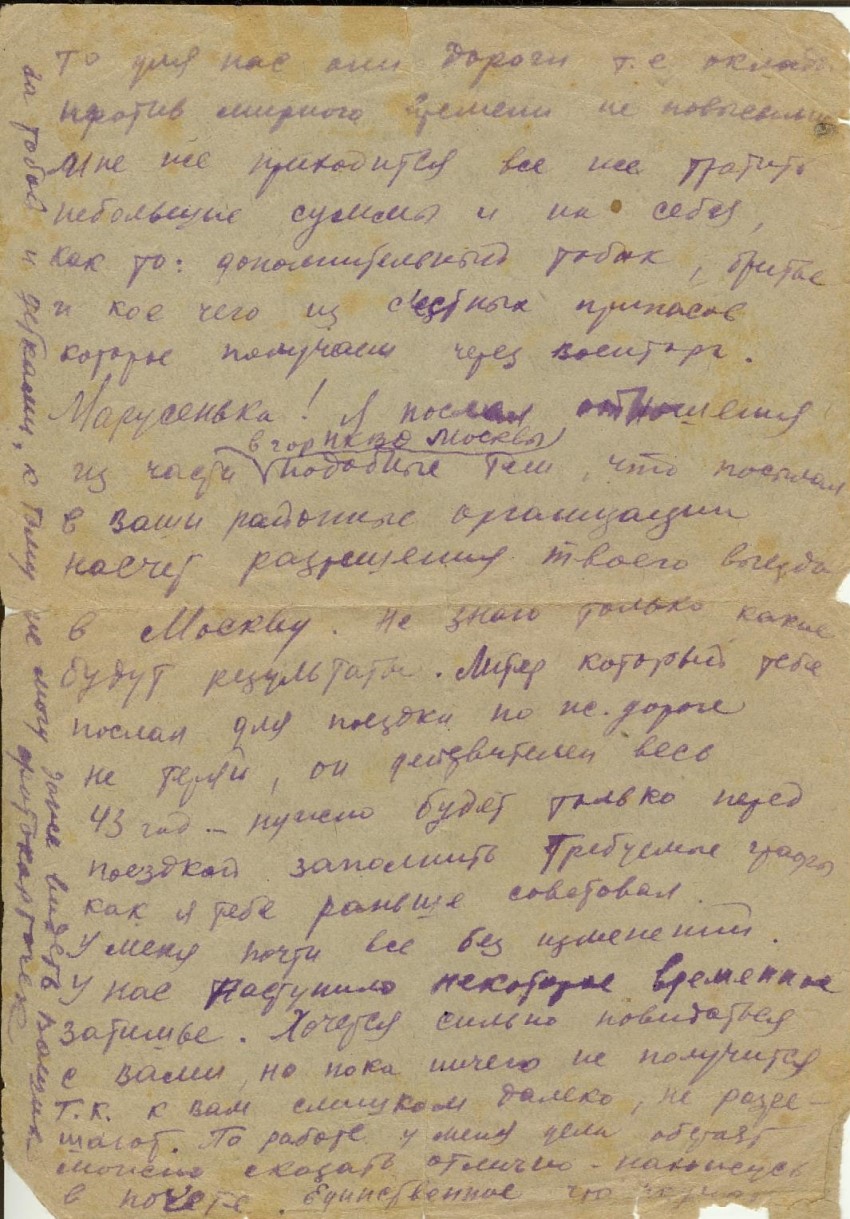 то для нас они дороги т.е оклады
против мирного времени не повысились
Мне же приходится все же тратить
небольшие суммы и на себя,
как то: дополнительный табак, бритье
и кое чего из с'естных припасов
которые получаем через военторг.
Марусенька! Я послал отношения
в гор НКВД Москвы
из части подобные тем, что посылал
в ваши районные организации
насчет разрешения твоего выезда
в Москву. Не знаю только какие
будут результаты. Литер который тебе
послал для поездки по ж. дороге
не теряй, он действителен весь
43 год – нужно будет только перед
поездкой заполнить требуемые графы
как я тебе раньше советовал.
У меня почти все без изменений.
У нас наступило некоторое временное
затишье. Хочется сильно повидаться
с вами, но пока ничего не получится
т.к. к вам слишком далеко, не разре-
шают. По работе у меня дела обстоят
можно сказать отлично – нахожусь
в почете. Единственное что
за тобой и детками, к тому не могу даже видеть ваших
фотокарточек